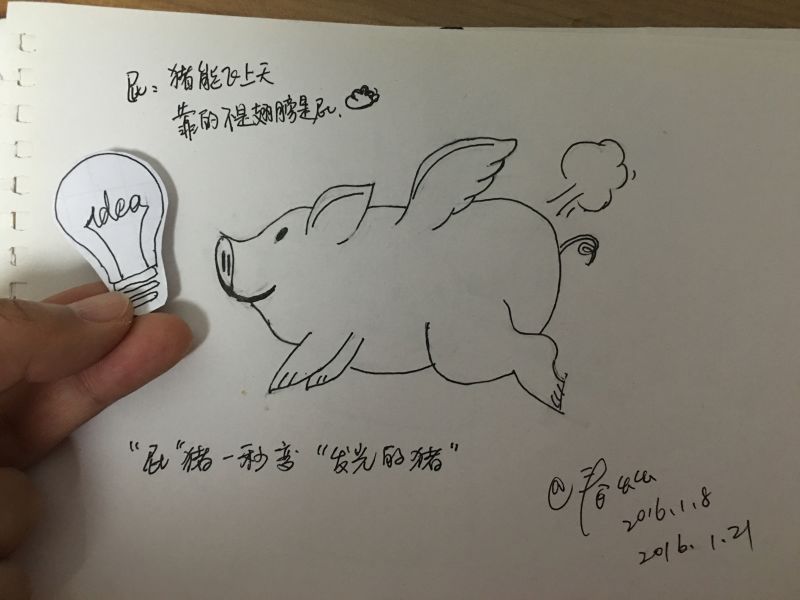 屁：猪能飞上天
靠的不是翅膀是屁.
idea
"屁"猪一秒变"发光的猪"
2016.1.8
2016.1.21